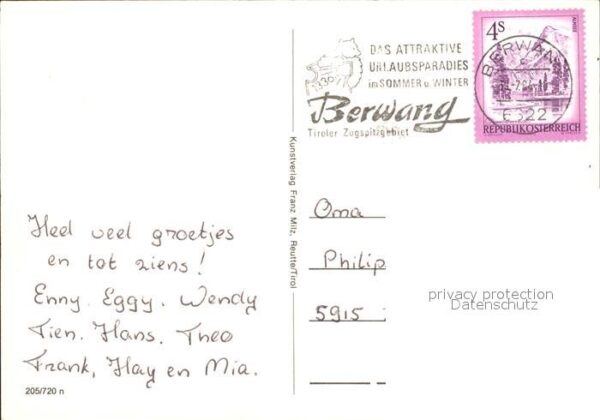 Heel veel groetjes
en tot ziens!
Enny. Eggy. Wendy
Tien. Hans. Theo
Frank, Hay en Mia.
205/720 n
Kunstverlag Franz Milz, Reutte/Tirol
DAS ATTRAKTIVE
URLAUBSPARADIES
im SOMMER u. WINTER
Berwang
Tiroler Zugspitzgebiet
4S
ALMSEE
REPUBLIK ÖSTERREICH
BERWANG
6622
Oma
Philip
5915
privacy protection
Datenschutz